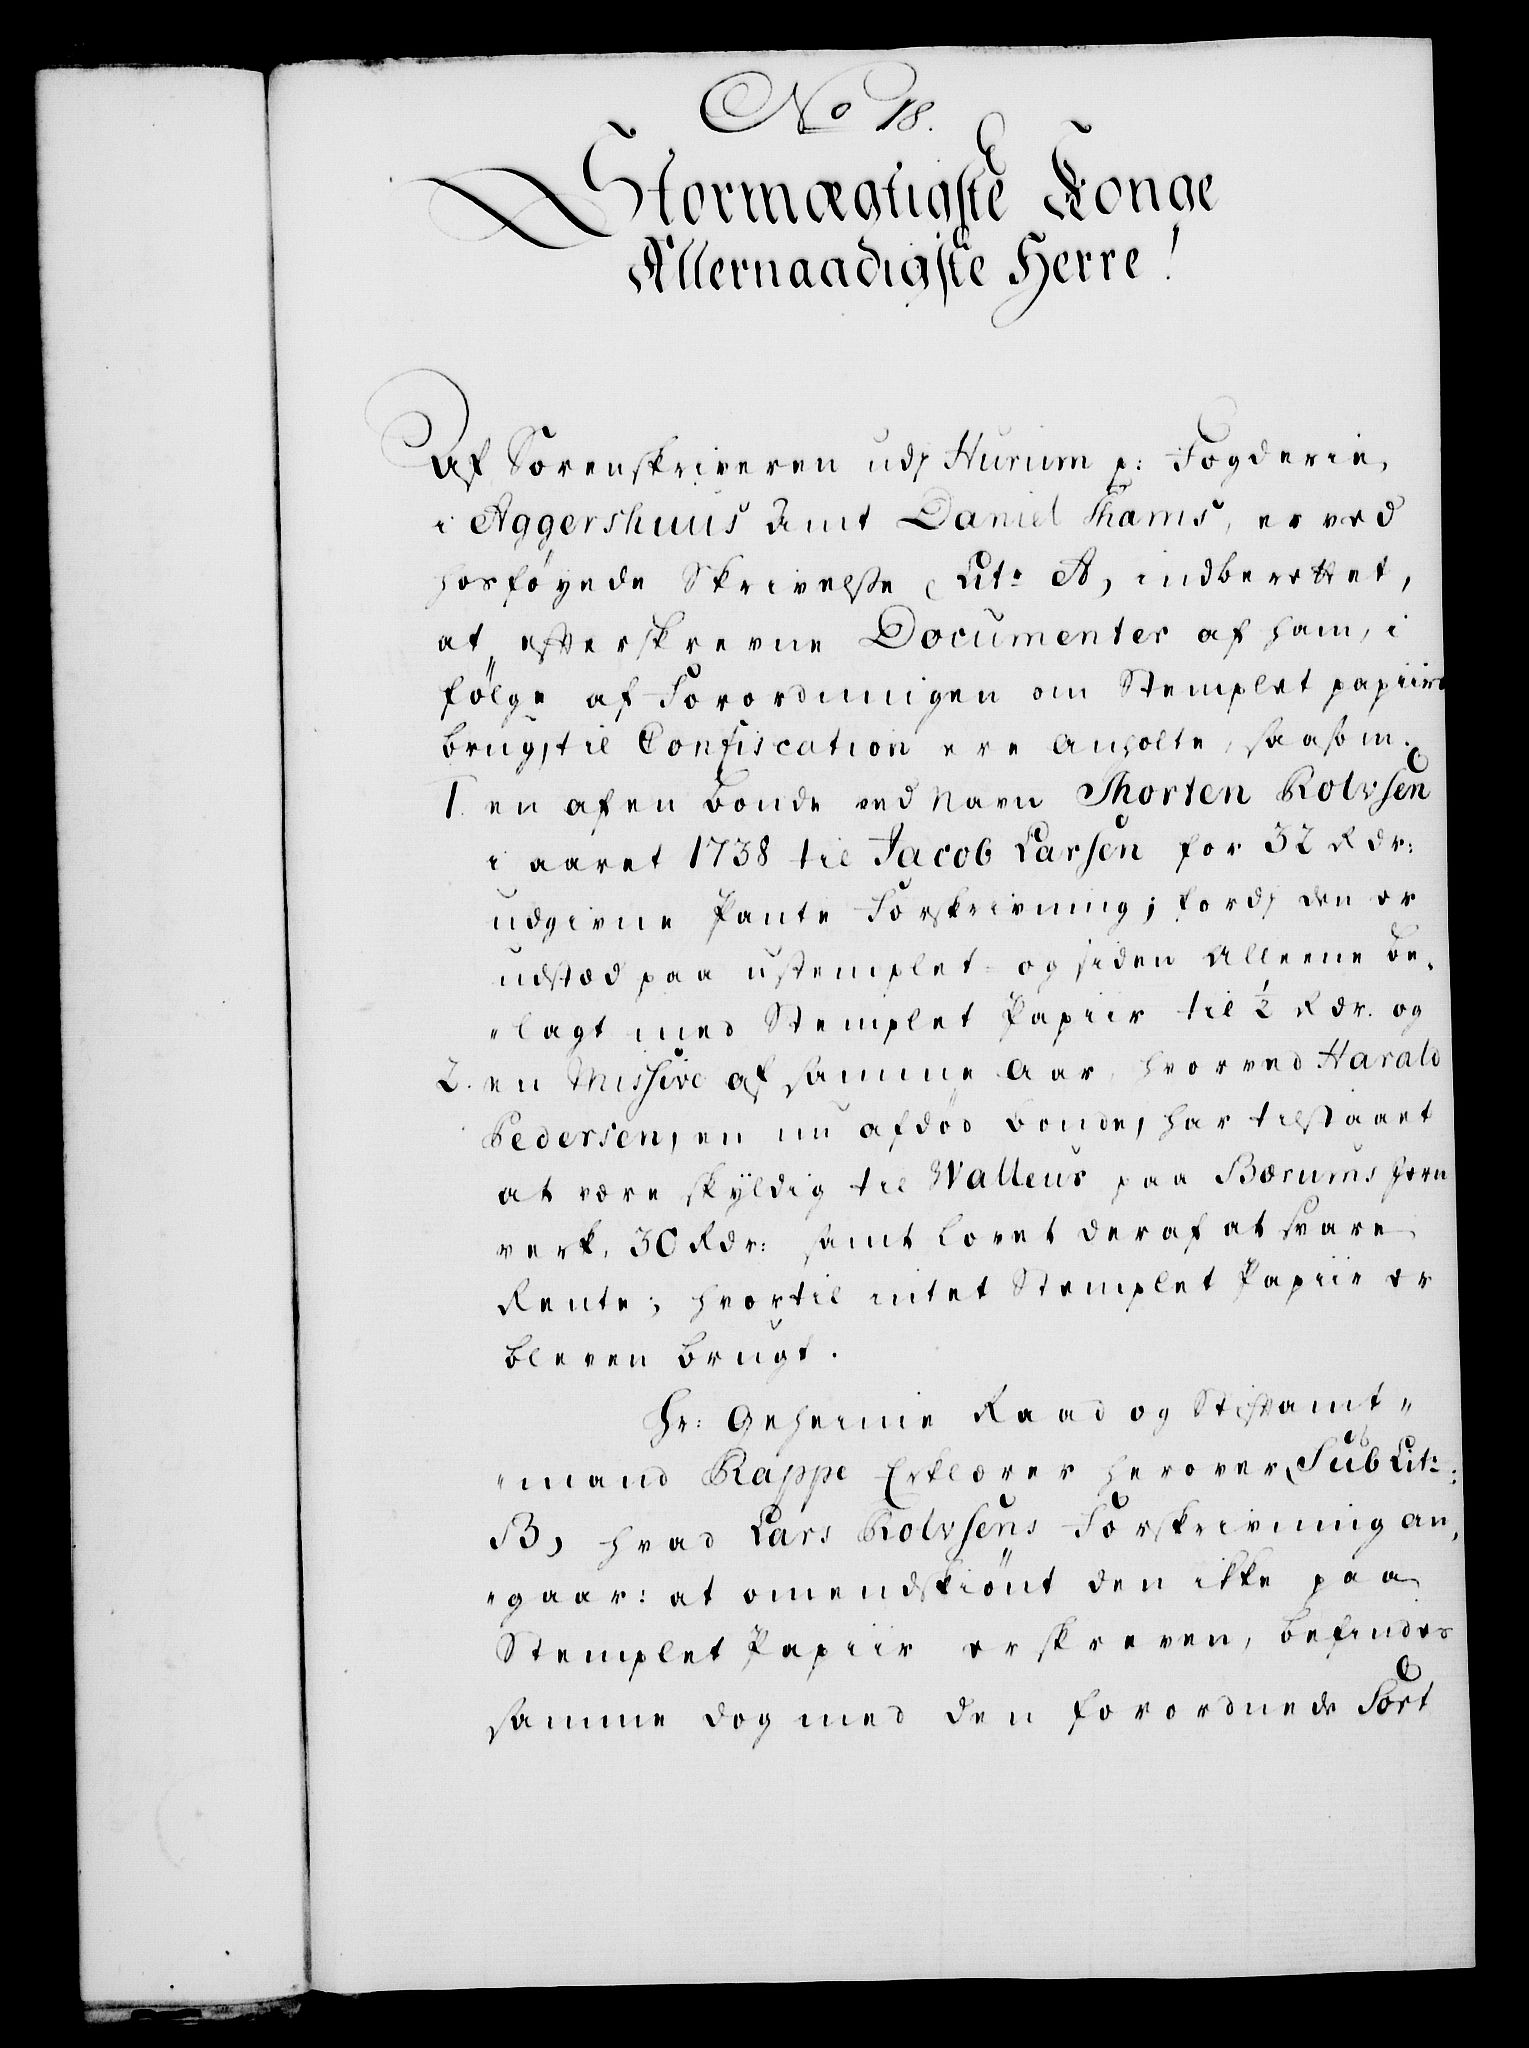 No 18.
Stormægtigste Konge
Allernaadigste Herre!
Af Sorenskriveren udj Hurum p: Fogderie,
i Aggershuus Amt Daniel Thams, er ved
hosføyede Skrivelse Lit: A, indberettet,
at efterskrevne Documenter af ham, i
følge af Forordningen om Stemplet papiirs
brug, til Confiscation ere anholte, saasom.
1. en af en bonde ved Navn Thorsten Rolvsen
i aaret 1738 til Jacob Larsen for 32 Rdr:
udgivne Pante Forskrivning; fordj den er
udstæd paa ustemplet- og siden alleene be-
"lagt med Stemplet Papiir til ½ Rdr. og
2. en Missive af samme Aar, hvorved Harald
Pedersen, en nu afdød bonde, har tilstaaet
at være skÿldig til Walleur paa Bærums Jern
verk, 30 Rdr: samt lovet deraf at svare
Rente; hvortil intet Stemplet Papiir er
bleven brugt.
Hr: Geheime Raad og Stiftamt-
"mand Rappe Erklærer herover, Sub Lit:
B, hvad Lars Rolvsens Forskrivning an-
"gaar: at omendskiönt den ikke paa
Stemplet Papiir er skreven, befindes
samme dog med den forordnede Sort